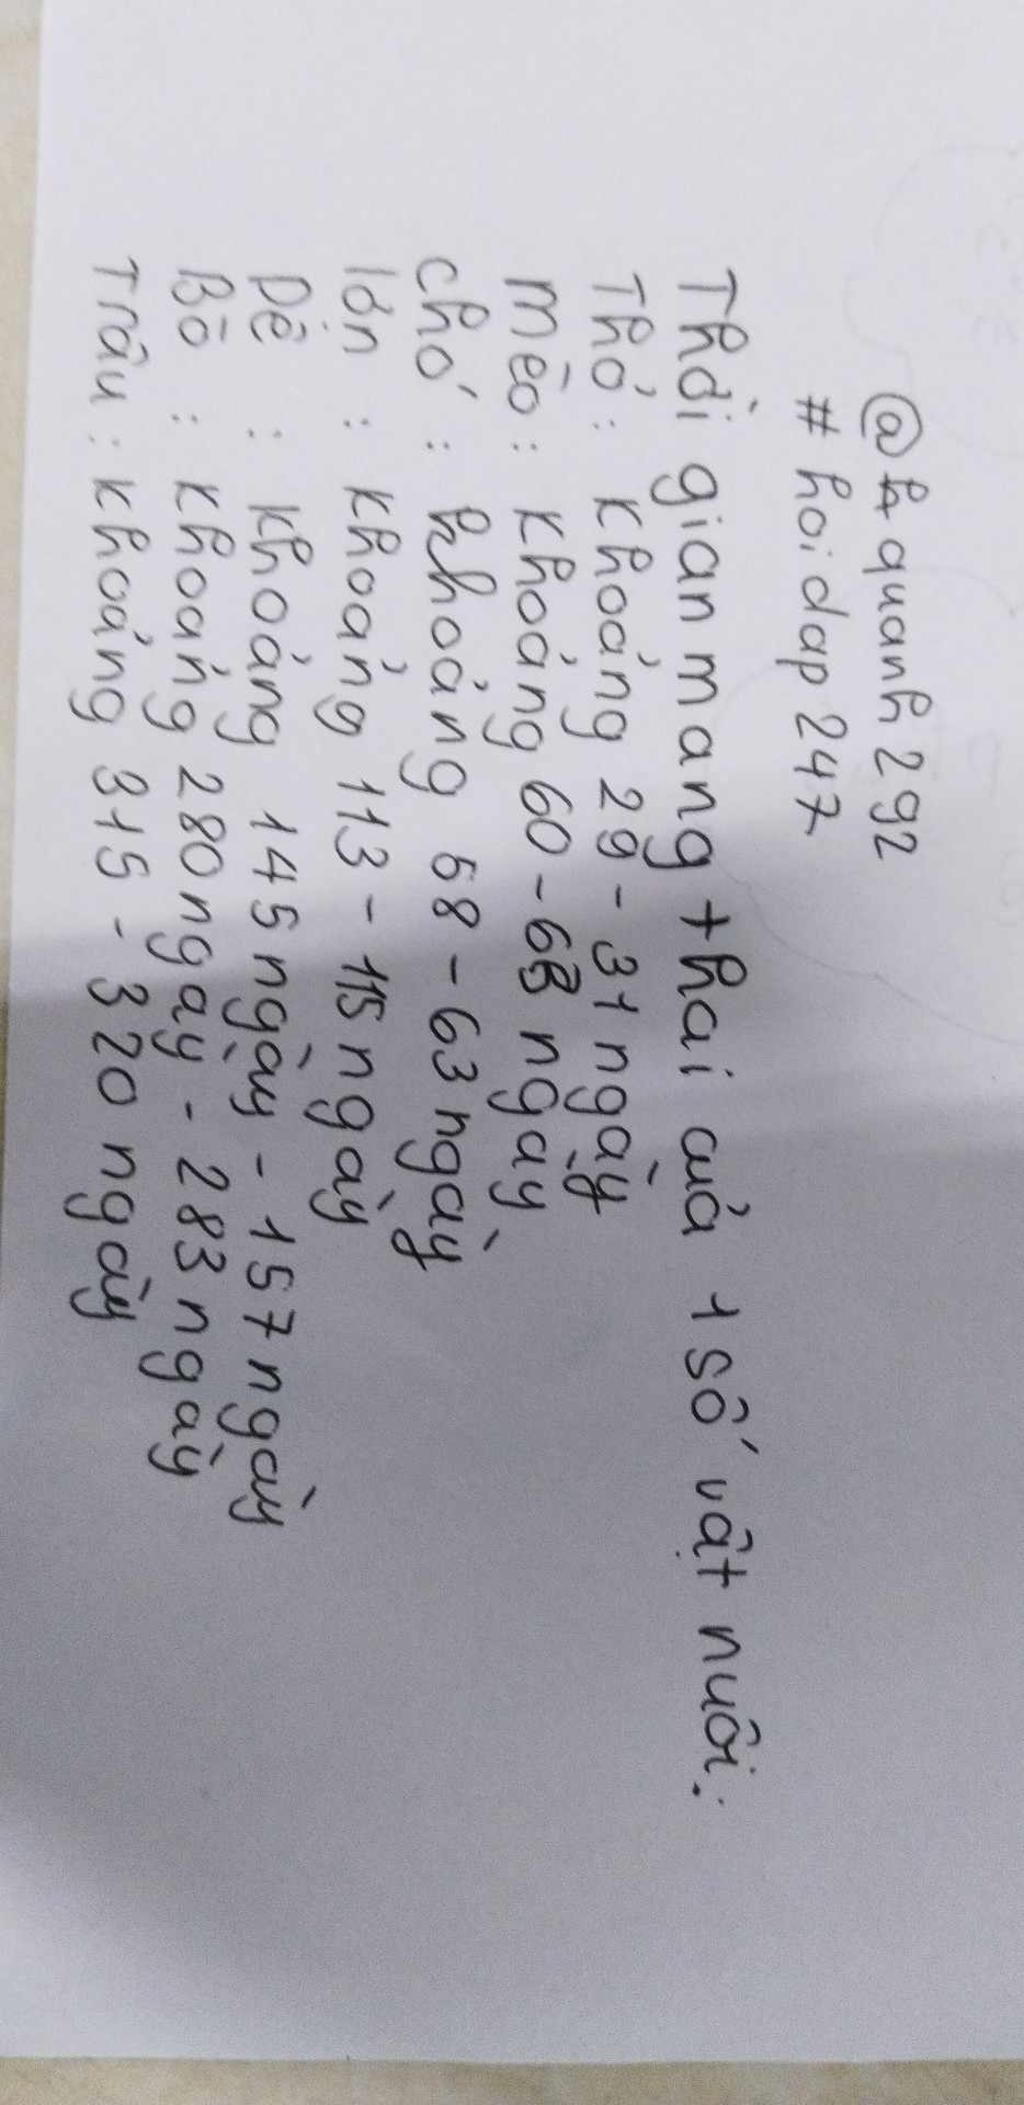 @hquanh292
# hoidap247
Thời gian mang thai cuả 1 số vật nuôi:
Thỏ: Khoảng 29 - 31 ngày
Mèo: Khoảng 60 - 63 ngày
Chó: Khoảng 58 - 63 ngày
lợn: Khoảng 113 - 115 ngày
Dê: Khoảng 145 ngày - 157 ngày
Bò: Khoảng 280 ngày - 283 ngày
Trâu: Khoảng 315 - 320 ngày